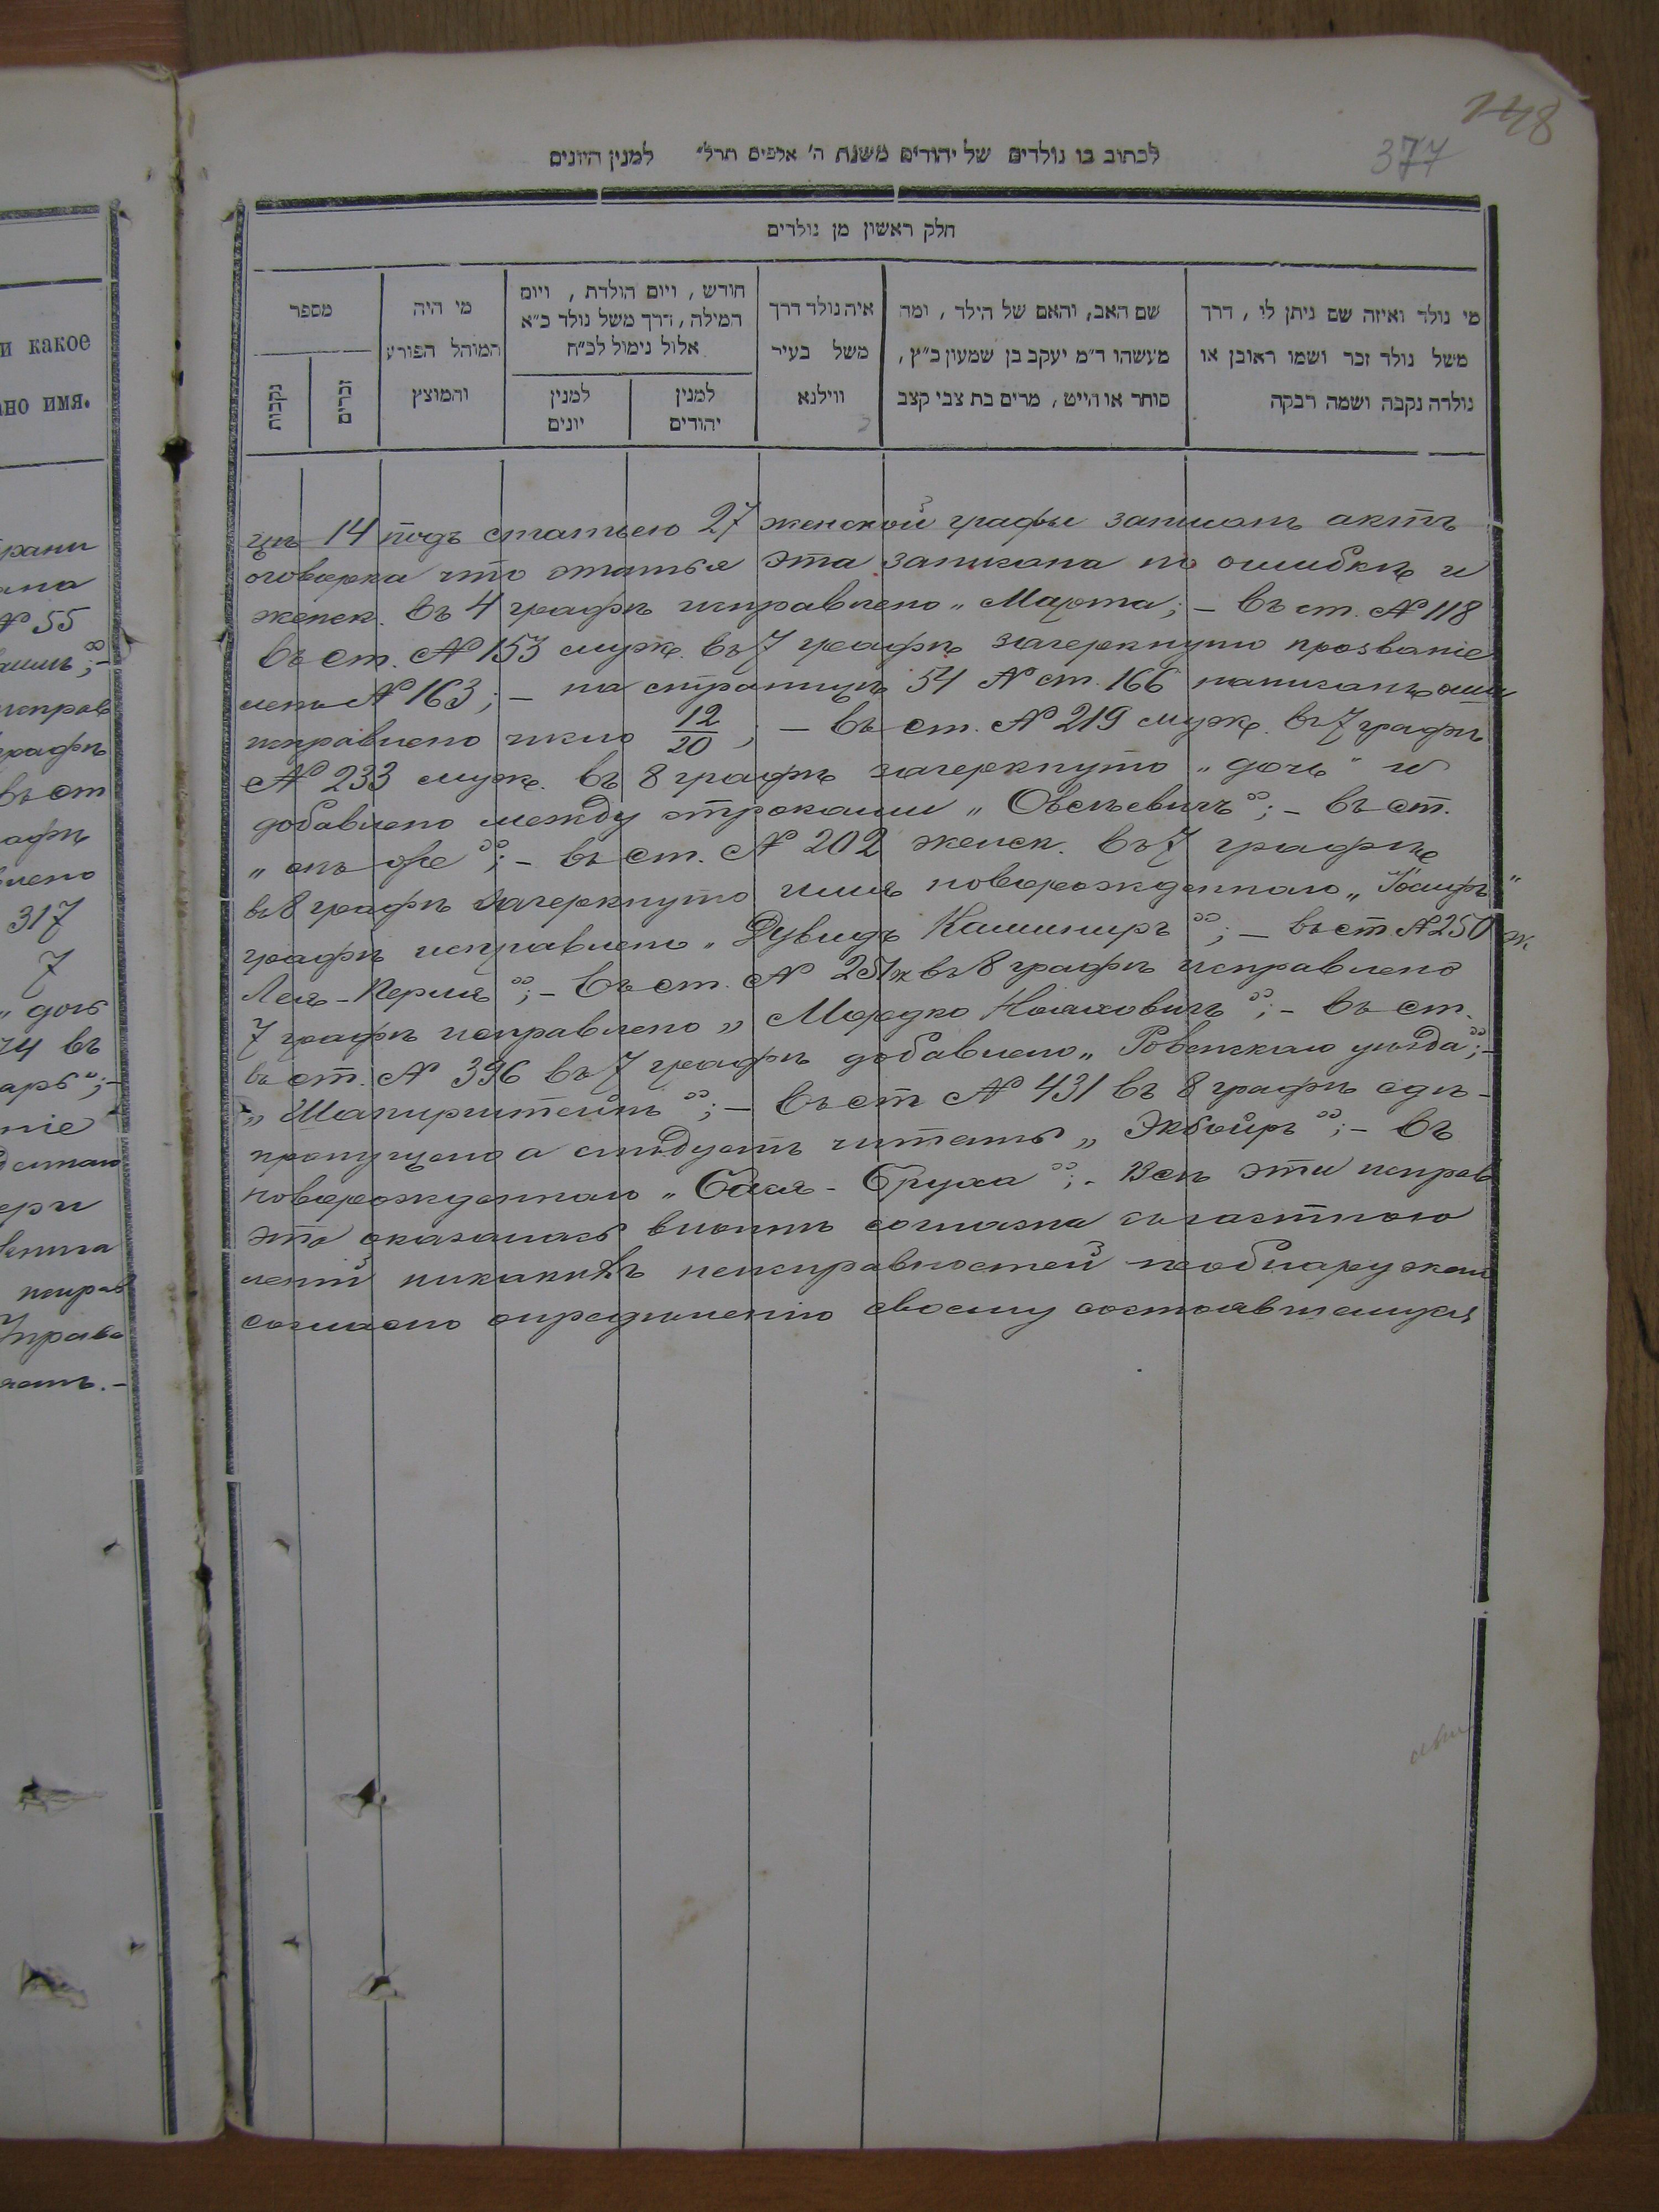 148
377
לכתוב בו נולדים של יהודים משנת ה' אלפים תרל" למנין היונים
חלק ראשון מן נולדים
מספר
נקבות
זכרים
מי היה
המוהל הפורע
והמוצץ
חודש , ויום הולדת , ויום
המילה , דרך משל נולד כ"א
אלול נימול לכ"ח
למנין
יונים
למנין
יהודים
איה נולד דרך
משל בעיר
ווילנא
שם האב, והאם של הילד , ומה
מעשהו ד"מ יעקב בן שמעון כ"ץ,
סוחר או הייט , מרים בת צבי קצב
מי נולד ואיזה שם ניתן לו , דרך
משל נולד זכר ושמו ראובן או
נולדה נקבה ושמה רבקה
цѣ 14 подъ статьею 27 женской графы записанъ актъ
оговорка что статья эта записана по ошибкѣ и
женск. въ 4 графѣ исправлено „Марта; – въ ст. № 118
въ ст. № 153 муж. въ 7 графѣ зачеркнуто прозваніе
ленъ № 163; – на страницѣ 54 № ст. 166 написанъ оши
исправлено число 12/20; – въ ст. № 219 муж. въ 7 графѣ
№ 233 муж. въ 8 графѣ зачеркнуто „дочь" и
добавлено между строками „Овсѣевичъ"; – въ ст.
„онъ же"; – въ ст. № 202 женск. въ 7 графѣ
въ 8 графѣ зачеркнуто имя новорожденнаго „Іосифъ"
графѣ исправлено „Дувидъ Кашниръ"; – въ ст. № 250 ж.
Лея-Перля"; – въ ст. № 251 ж въ 8 графѣ исправлено
7 графѣ исправлено „Мордко Ноаховичъ"; – въ ст.
въ ст. № 396 въ 7 графѣ добавлено „Ровенскаго уѣзда";–
„Шапирштейнъ"; – въ ст № 431 въ 8 графѣ сдѣ-
пропущено а слѣдуетъ читать „Экбойръ"; – въ
новорожденнаго „Сося-Бруха"; – Всѣ эти исправ
это оказалась вполнѣ согласна съ частною
леній никакихъ неисправностей необнаружено
согласно опредѣленію своему состоявшемуся
и какое
но имя.
№ 55
графѣ
въ ст
317
7
„дочь
74 въ
ніе
книга